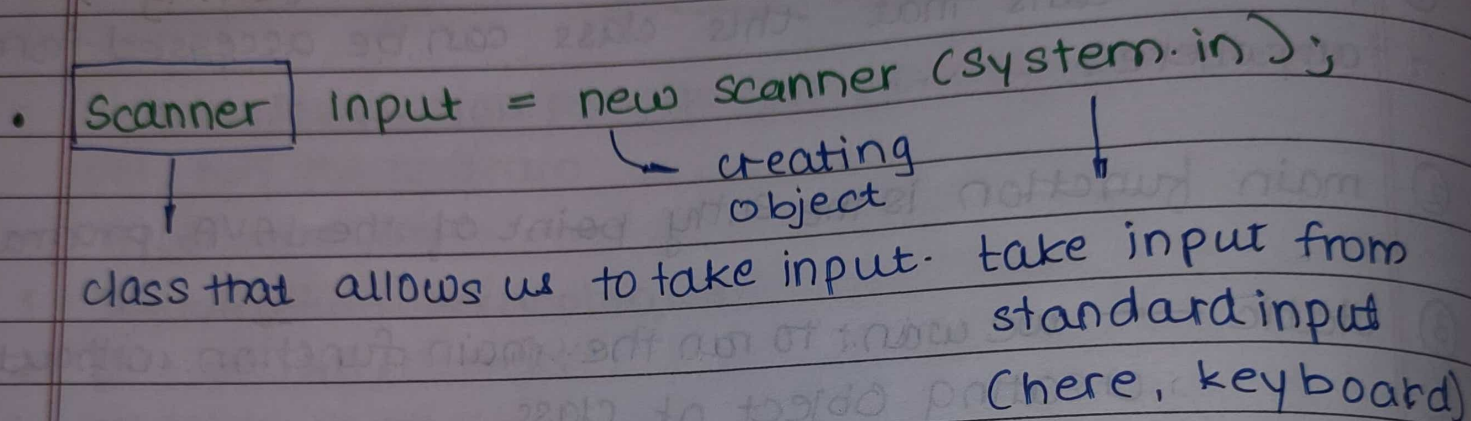 • Scanner input = new scanner (system.in);
creating
object
class that allows us to take input. take input from
standard input
(here, keyboard)